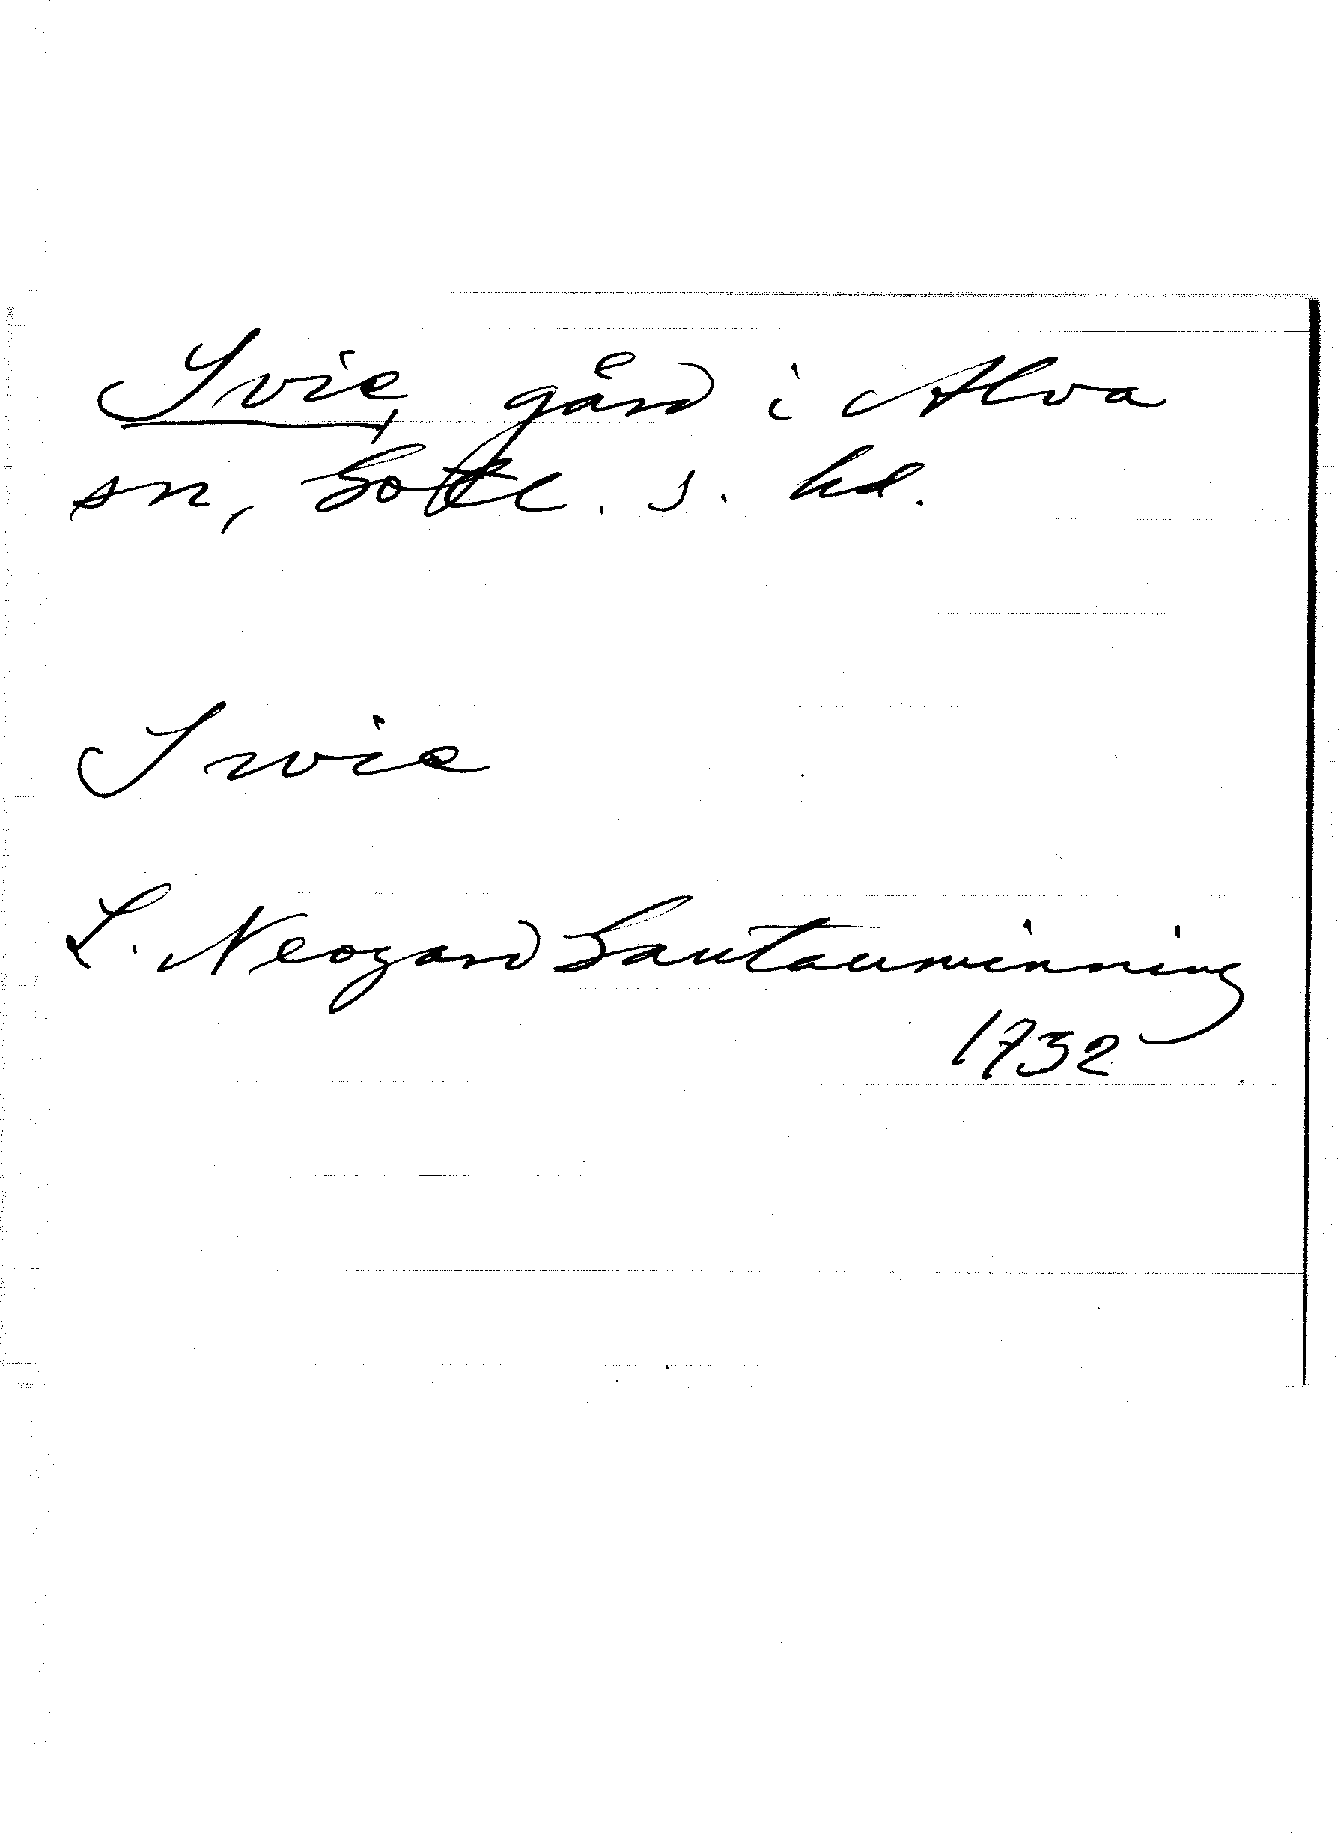 Svie, gård i Alva
sn, Gotl. s. hd.
Swie
L. Neogard Gautauminning
1732